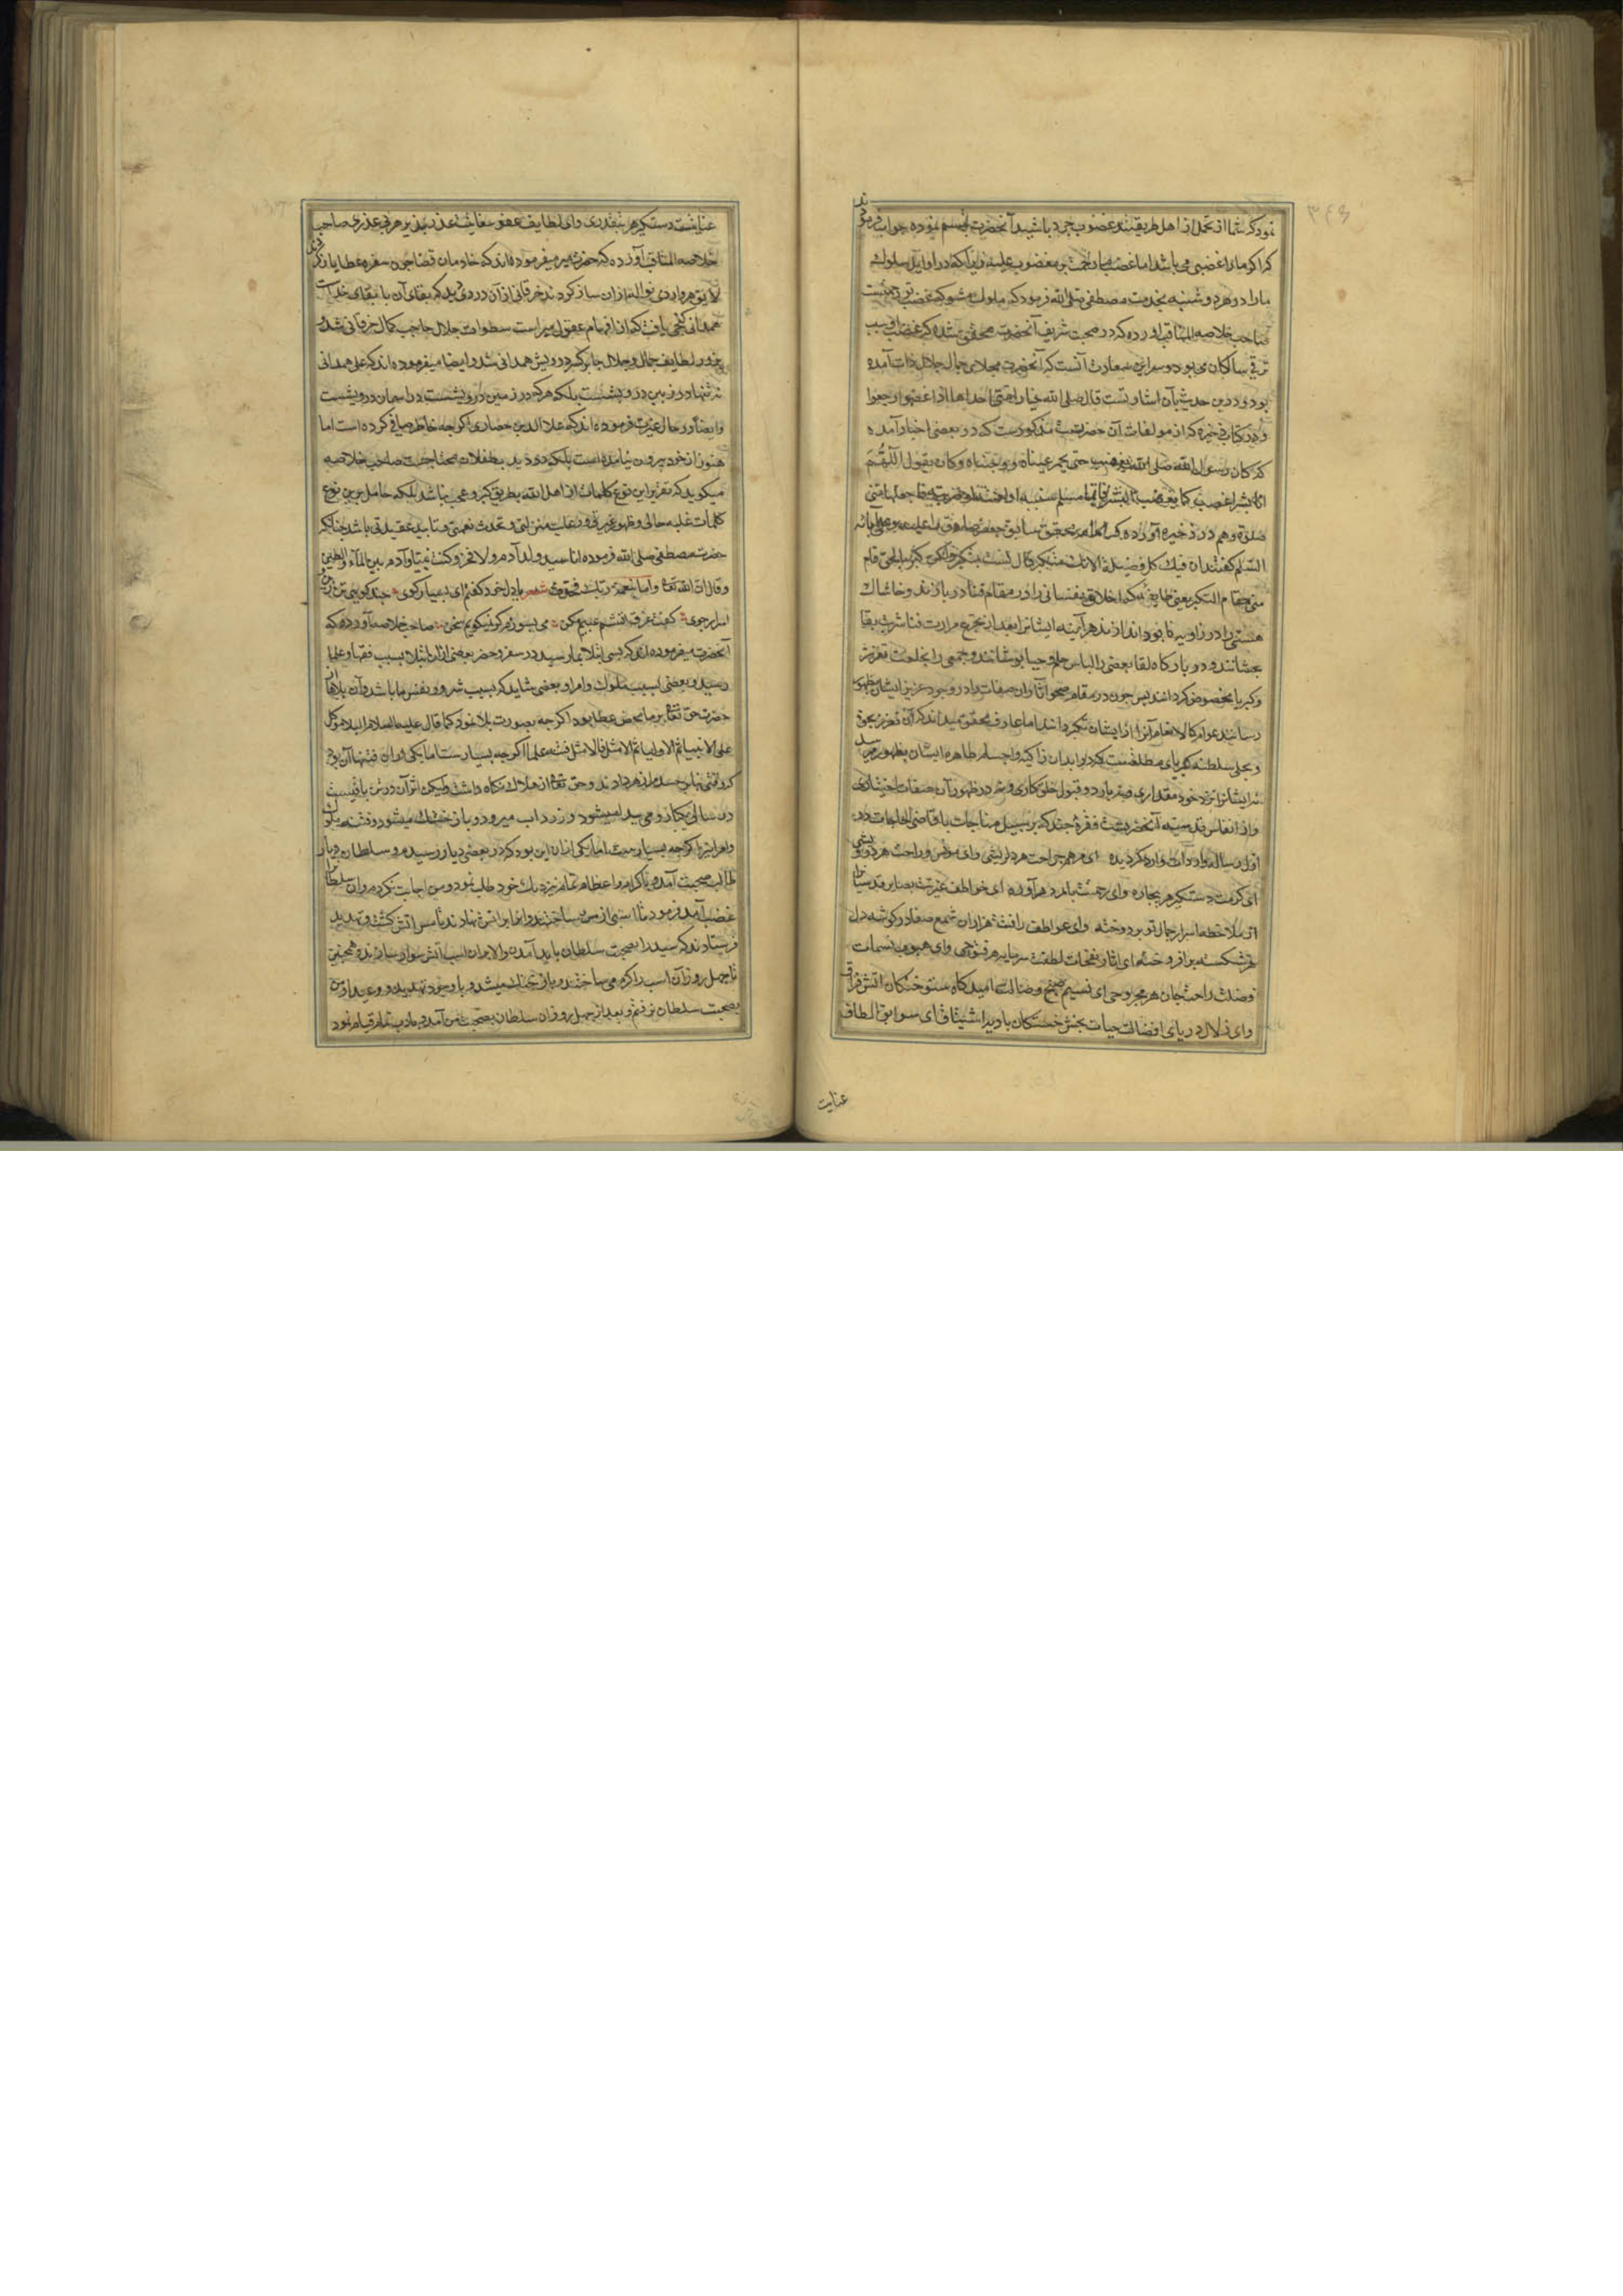 ۳۴۹
نمود که شما از کمل از اهل طریقتید غضوب چرا باشید آنحضرت تبسم نموده جواب فرمودند
که اگر ما را غضبی می باشد اما غضب ما رحمت بر مغضوب علیه و زیرا که در اوایل سلوک
ما را در هر دو شنبه بخدمت مصطفی صلی الله فرمود که ملول مشو که غضب تو رحمتست
صاحب خلاصة المناقب آورده که در صحبت شریف آنحضرت محقق شده که غضب او سبب
ترقی سالکان می بود و سر این سعادت آنست که آنحضرت مجلای جمال جلال ذات آمده
بود و درین حدیث بآن اشارتست قال صلی الله خیار امتی احداها اذا غضبوا رجعوا
و در کتاب ذخیره که از مولفات آن حضرتست مذکورست که در بعضی اخبار آمده
که کان رسول الله صلی الله یغضب حتی یحمر عیناه و وجنتاه و کان یقول اللهم
انا بشر اغضب کما یغضب البشر فایما مسلم سببته او لعنته او ضربته فاجعلها منی
صلوة و هم در ذخیره آورده که امام بحقق سابق جعفر صادق را علیه و علی آبائه
السلم گفتند ان فیک کل فضیلة الا انک متکبر قال لست بمتکبر ولکن کبریاء الحق قام
منی مقام التکبر یعنی طایفه که اخلاق نفسانی را در مقام فنا در بازند و خاشاک
هستی را در زاویه نابود اندازند هر آینه ایشانرا بعد از تجرع مرارت فنا شربت بقا
بچشانند و در بارگاه لقا بعضی را لباس حلم و حیا پوشانند و جمعی را بخلعت تعزز
و کبریا مخصوص گردانند پس چون در مقام صحو آثار ان صفات را در وجود عزیز ایشان بظهور
رسانند عوام کالانعام آنرا از ایشان تکبر دانند اما عارف محقق میداند که آن تعزز بحق
و تجلی سلطنه کبریای مطلقست که در ابدان زاکیه و اجسام طاهره ایشان بظهور میرسد
نه ایشانرا نزد خود مقداری و نه بار رد و قبول خلق کاری و نه در ظهور آن صفات اختیاری
و از انفاس قدسیه آنحضرتست فقرهٔ چند که بر سبیل مناجات با قاضی الحاجات در
اول رساله واردات وارد گردیده ای مرهم جراحت هر دلریشی وای مونس و راحت هر درویشی
ای کرمت دستگیر هر بیچاره وای رحمتت پایمرد هر آواره ای خواطف غیرتت بصایر قدسیان را
از ملاحظه اسرار جمال تو بردوخته وای عواطف رافتت هزاران شمع صفا در گوشه دل
هر شکسته برافروخته ای اثار نفحات لطفت سرمایه هر فتوحی وای هبوب نسمات
وصلت راحت جان هر مجروحی ای نسیم صبح وصالت امید گاه سوختگان اتش فراق
وای زلال دریای افضالت حیات بخش خستگان بادیه اشتیاق ای سوابق الطاف
عنایت
عنایتت دستگیر هر بیقدری وای لطایف عفو بیغایتت عذر پذیر هر بی عذری صاحب
خلاصة المناقب آورده که حضرت میر میفرموده اند که خادمان قضا چون سفره عطایا باز کردند
لایق هر واردی نواله از ان ساز کردند خرقانی از آن دردی دید که بقای آن با بقای خداست
همدانی گنجی یافت که ان از افهام عقول مبراست سطوات جلال حاجب کمال خرقانی شد و
بروز لطایف جمال و جلال جابر کسر درویش همدانی شد و ایضا میفرموده اند که علی همدانی
نه تنها در زمین درویشست بلکه هر که در زمین درویشست در اسمان درویشست
و ایضا در حال عزیزت فرموده اند که علا الدین حصاری اگرچه خاطر صافی کرده است اما
هنوز از خود بیرون نیامده است بلکه در دید بطفلان محتاجست صاحب خلاصه
میگوید که تقریر این نوع کلمات از اهل الله بطریق کبر و عجب نباشد بلکه حامل برین نوع
کلمات غلبه حالی و ظهور غیرتی و رعایت منزلتی و تحدث نعمتی و تایید عقیدتی باشد چنانکه
حضرت مصطفی صلی الله فرموده انا سید ولد آدم ولا فخر و کنت نبیا و آدم بین الماء والطین
و قال الله تعالی و اما بنعمة ربک فحدث شعر با دل خود گفتم ای بسیار گوی چند گویی تن زن و
اسرار جوی گفت غرق اتشم عیبم مکن می بسوزم گر نمیگویم سخن صاحب خلاصه آورده که
آنحضرت میفرموده اند که بسی ابتلا بما رسید در سفر و حضر بعضی از ان ابتلا بسبب فقها و علما
رسید و بعضی بسبب ملوک و امرا و بعضی شاید که بسبب شرور نفس ما باشد و آن بلاها از
حضرت حق تعالی بر ما محض عطا بود اگرچه بصورت بلا نمود کما قال علیه السلام البلا موکل
علی الانبیا ثم الاولیا ثم الامثل فالامثل فتنه علما اگرچه بسیارست اما یکی از ان فتنها آن بود
که وقتی بنا بر حسد مرا زهر دادند و حق تعالی از هلاک نگاه داشت ولیکن اثر آن در تن باقیست
در سالی یکبار ورمی پیدا میشود و زرداب میرود و باز خشک میشود و فتنه ملوک
و امرا نیز اگرچه بسیارست اما یکی از ان این بود که در بعضی دیار رسیدم و سلطان دیار
طالب صحبت آمده باکرام و اعظام تمام نزدیک خود طلب نمود و من اجابت نکردم و ان سلطان را
غضب آمد فرمود تا اسبی از مس ساختند و انرا بر اتش نهادند تا مس اتش گشت و تهدید
فرستادند که سید را بصحبت سلطان باید آمدن والا بر ان اسب آتش سوار سازند و همچنین
تا چهل روز آن اسب را گرم می ساختند و باز خنک میشد و با وجود تهدید و وعید او من
بصحبت سلطان نرفتم و بعد از چهل روز ان سلطان بصحبت من آمد و بادب تمام قیام نمود